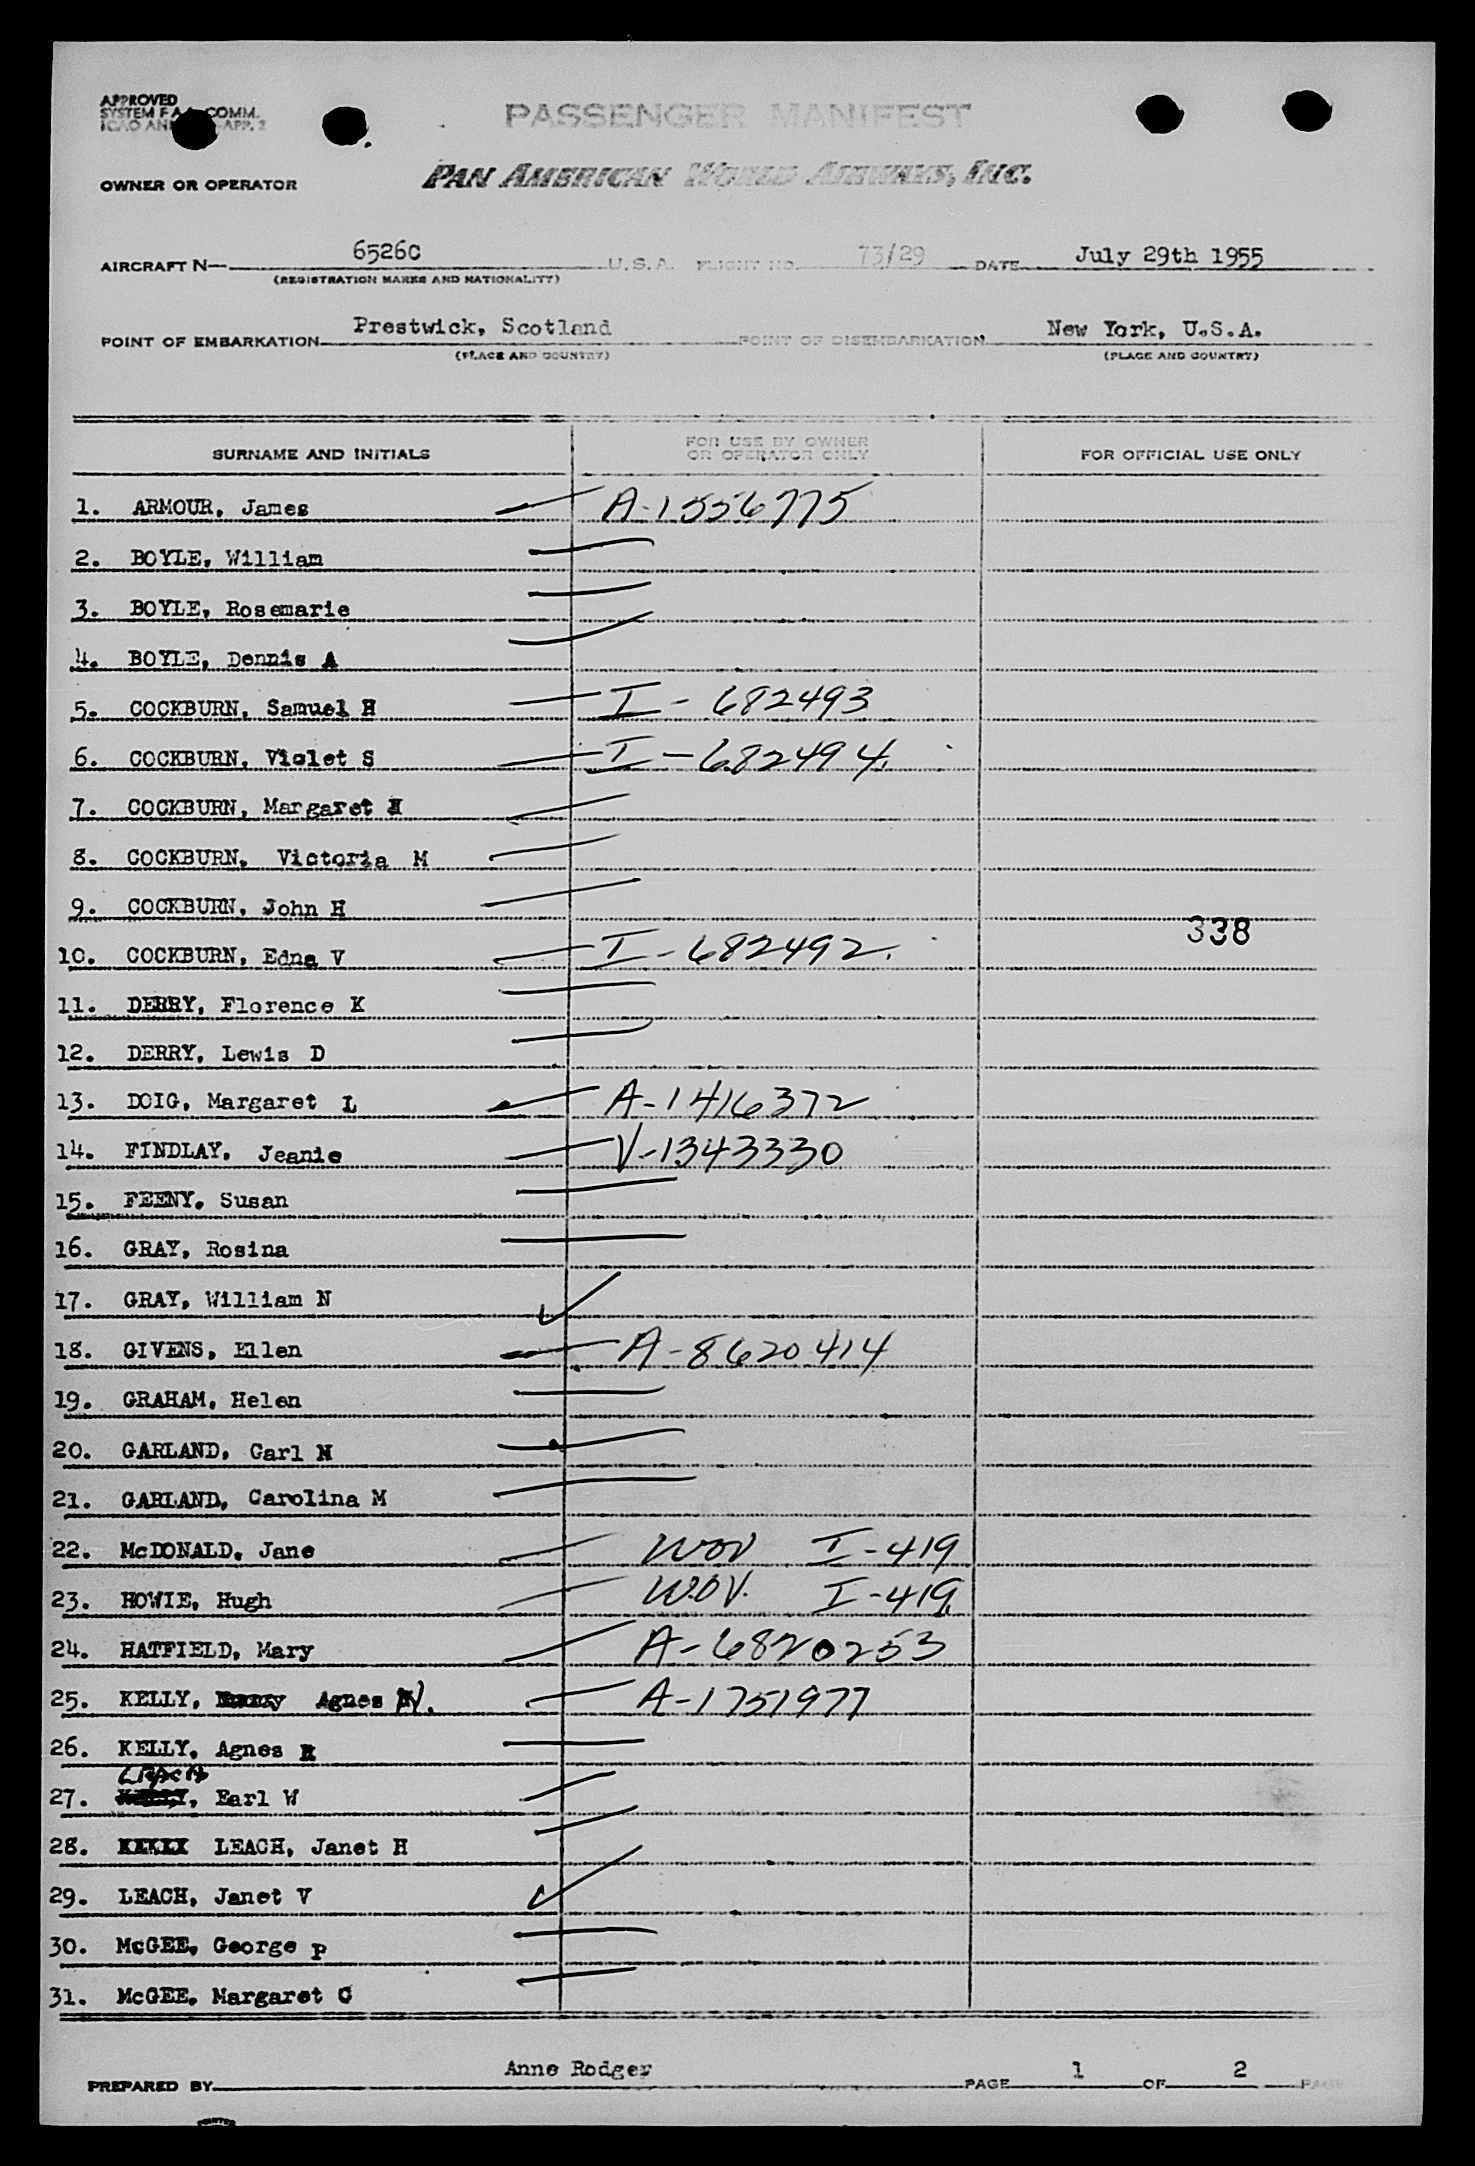 APPROVED
SYSTEM F.A.L. COMM.
ICAO AN APP. 2
PASSENGER MANIFEST
OWNER OR OPERATOR PAN AMERICAN WORLD AIRWAYS, INC.
AIRCRAFT N— 6526C U.S.A. FLIGHT NO. 73/29 DATE July 29th 1955
(REGISTRATION MARKS AND NATIONALITY)
POINT OF EMBARKATION Prestwick, Scotland POINT OF DISEMBARKATION New York, U.S.A.
(PLACE AND COUNTRY) (PLACE AND COUNTRY)
SURNAME AND INITIALS FOR USE BY OWNER OR OPERATOR ONLY FOR OFFICIAL USE ONLY
1. ARMOUR, James A-1556775
2. BOYLE, William
3. BOYLE, Rosemarie
4. BOYLE, Dennis A
5. COCKBURN, Samuel H I - 682493
6. COCKBURN, Violet S I - 682494.
7. COCKBURN, Margaret H
8. COCKBURN, Victoria M
9. COCKBURN, John H
338
10. COCKBURN, Edna V I - 682492.
11. DERRY, Florence K
12. DERRY, Lewis D
13. DOIG, Margaret L A-1416372
14. FINDLAY, Jeanie V-1343330
15. FEENY, Susan
16. GRAY, Rosina
17. GRAY, William N
18. GIVENS, Ellen A-8620414
19. GRAHAM, Helen
20. GARLAND, Carl M
21. GARLAND, Carolina M
22. McDONALD, Jane WOV I-419
23. HOWIE, Hugh W.O.V. I-419
24. HATFIELD, Mary A-6820253
25. KELLY, Agnes N. A-1751977
26. KELLY, Agnes R
LEACH
27. KELLY, Earl W
28. LEACH, Janet H
29. LEACH, Janet V
30. McGEE, George P
31. McGEE, Margaret C
PREPARED BY Anne Rodger PAGE 1 OF 2